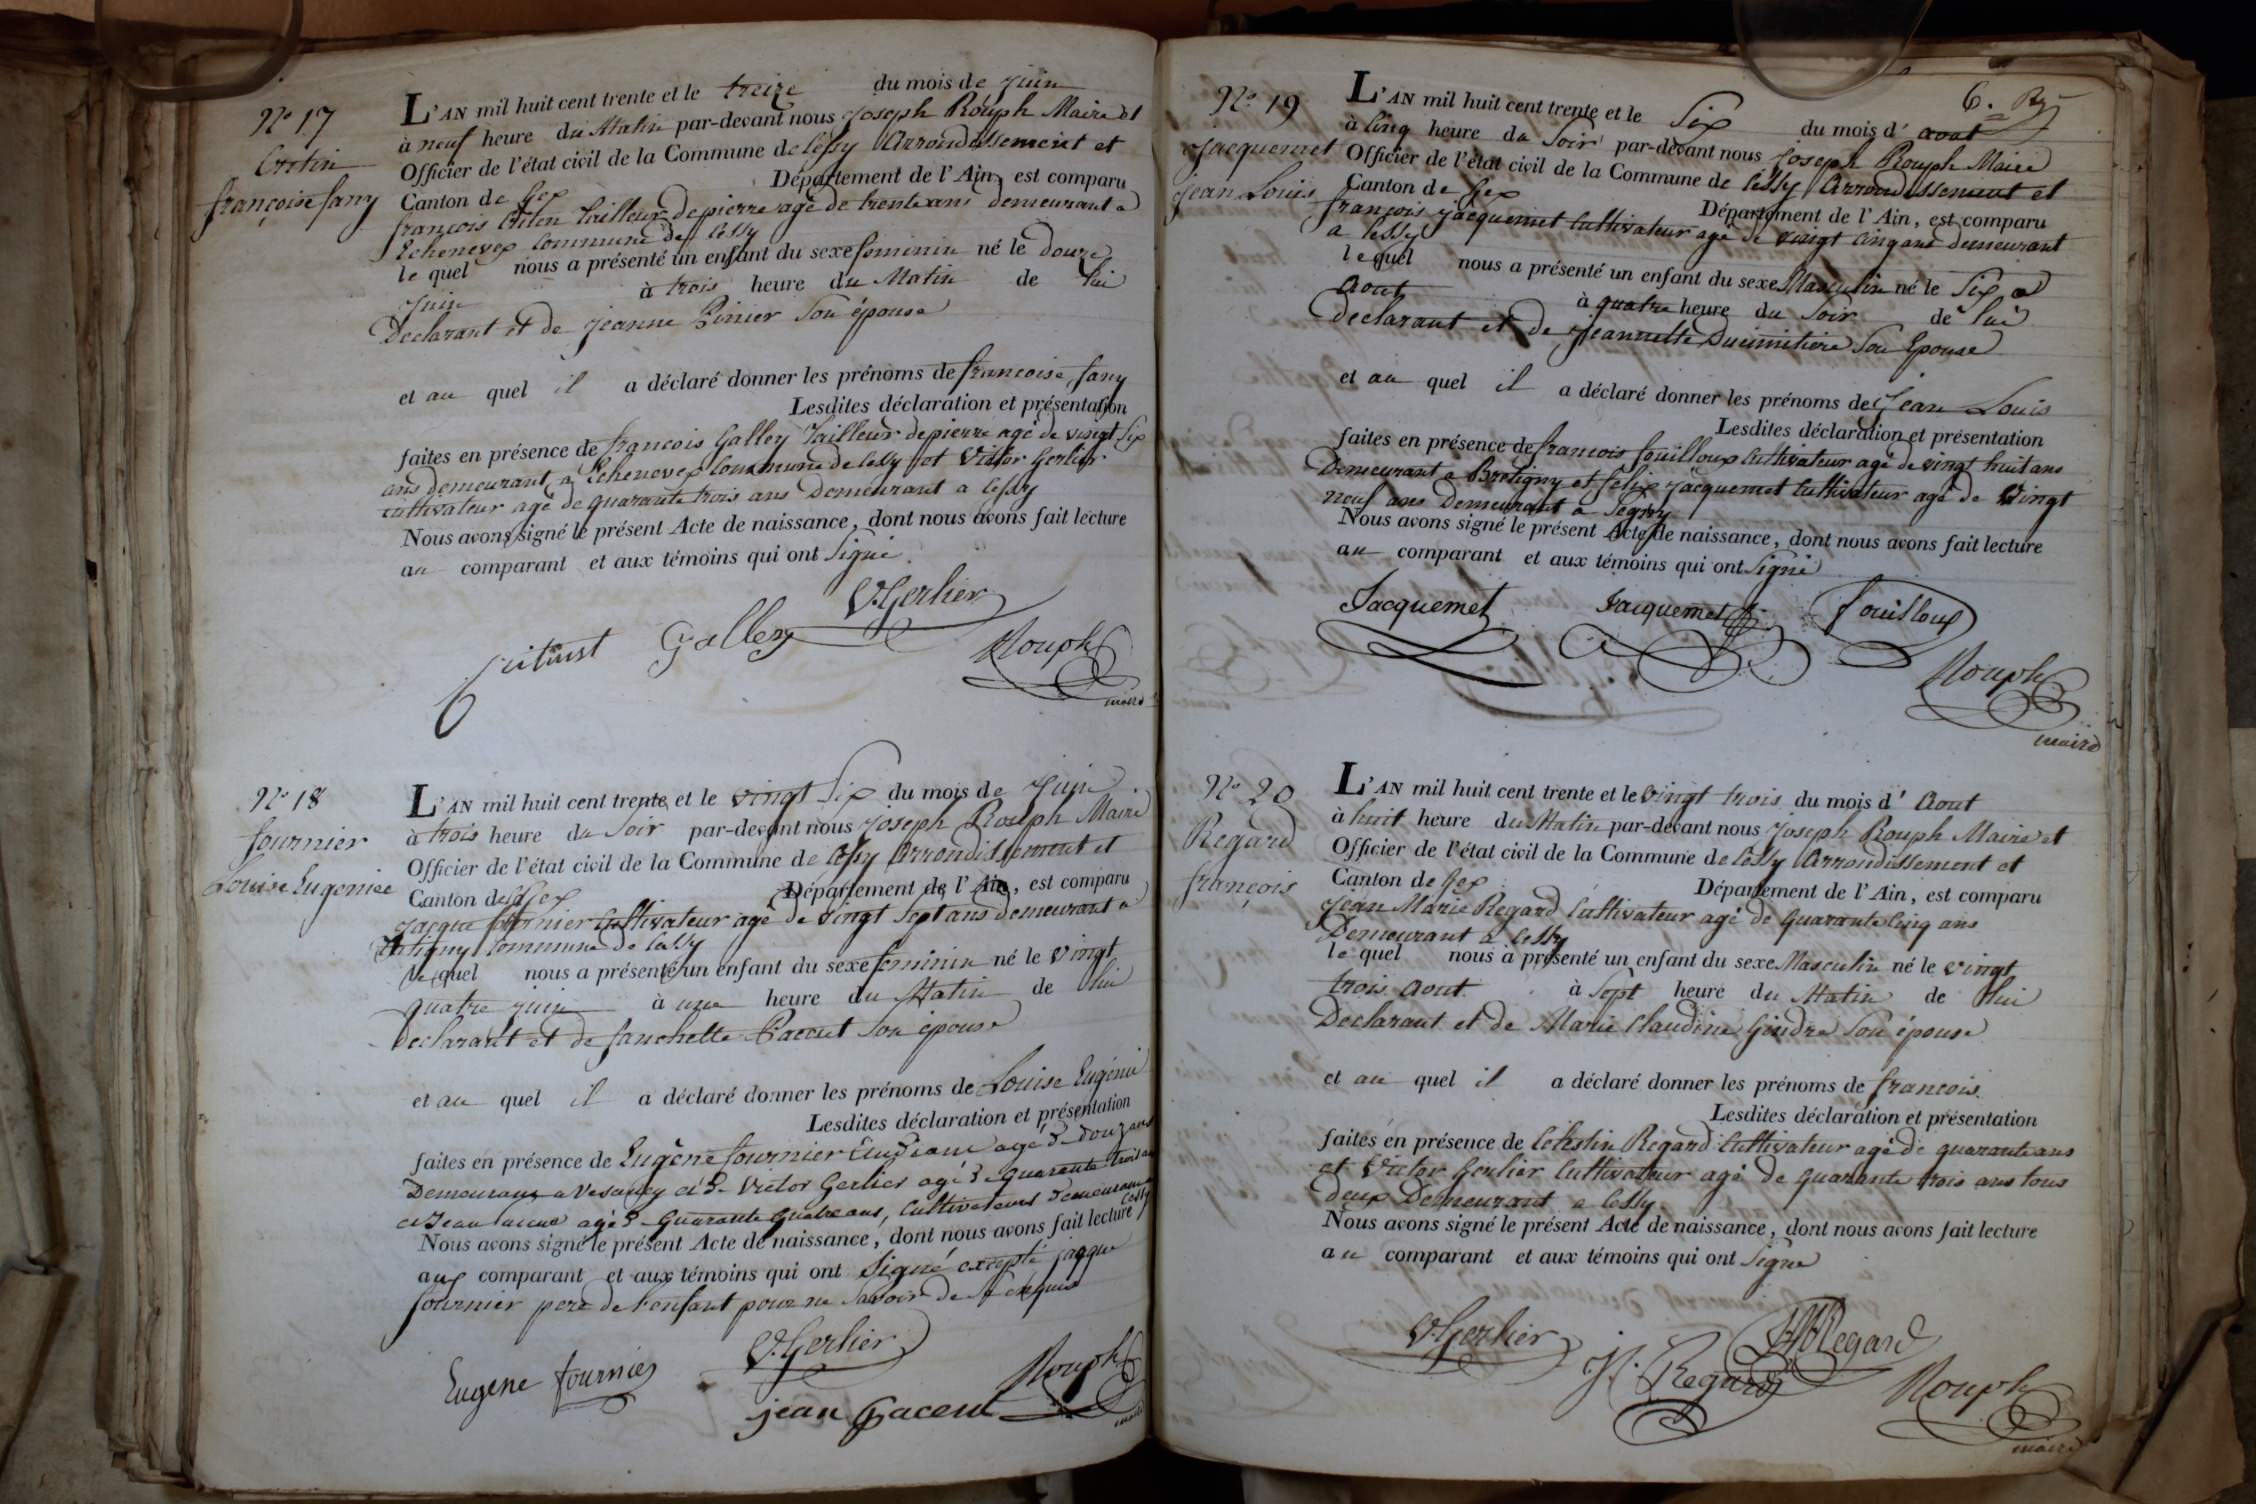 N° 17
Françoise fany
L'AN mil huit cent trente et le treize du mois de juin
à neuf heure du Matin par-devant nous joseph Rouph Maire et
Officier de l'état civil de la Commune de Cessy Arrondissement et
Canton de Gex Département de l'Ain, est comparu
françois tailleur de pierre agé de trente ans demeurant a
Echenevex Commune de Cessy
le quel nous a présenté un enfant du sexe feminin né le douze
juin à trois heure du Matin de lui
Declarant et de jeanne Pinier son épouse
et au quel il a déclaré donner les prénoms de francoise fany
Lesdites déclaration et présentation
faites en présence de françois Galley Tailleur de pierre agé de vingt six
ans demeurant a Echenevex Commune de Cessy et Victor Gerlier
cultivateur agé de quarante trois ans Demeurant a Cessy
Nous avons signé le présent Acte de naissance, dont nous avons fait lecture
au comparant et aux témoins qui ont Signé
V. Gerlier
Galley
Rouph
maire
N° 18
fournier
Louise Eugenie
L'AN mil huit cent trente et le vingt Six du mois de juin
à trois heure du Soir par-devant nous joseph Rouph Maire
Officier de l'état civil de la Commune de Cessy Arrondissement et
Canton de Gex Département de l'Ain, est comparu
jacque fournier Cultivateur agé de vingt Sept ans demeurant a
Commune de Cessy
le quel nous a présenté un enfant du sexe feminin né le vingt
quatre juin à une heure du Matin de lui
Declarant et de fanchette Pacout son épouse
et au quel il a déclaré donner les prénoms de Louise Eugénie
Lesdites déclaration et présentation
faites en présence de Eugène fournier Etudiant agé de douz ans
Demeurant a Vesancy et de Victor Gerlier agé de quarante trois ans
et Jean agé de quarante quatre ans, Cultivateurs demeurant
Cessy
Nous avons signé le présent Acte de naissance, dont nous avons fait lecture
aux comparant et aux témoins qui ont Signé excepté jacque
fournier pere de l'enfant pour ne Savoir de ce requis
V. Gerlier
Eugene fournier
Rouph
jean Pacout
maire
6.
N° 19
Jacquemet
jean Louis
L'AN mil huit cent trente et le Six du mois d' aout
à Cinq heure du Soir par-devant nous joseph Rouph Maire
Officier de l'état civil de la Commune de Cessy Arrondissement et
Canton de Gex Département de l'Ain, est comparu
françois jacquemet Cultivateur agé de vingt Cinq ans demeurant
a Cessy
le quel nous a présenté un enfant du sexe Masculin né le Six
Aout à quatre heure du Soir de lui
Declarant et de jeannette Ducimitiere son Epouse
et au quel il a déclaré donner les prénoms de jean Louis
Lesdites déclaration et présentation
faites en présence de francois fouilloux Cultivateur agé de vingt huit ans
Demeurant a Bretigny et felix jacquemet Cultivateur agé de vingt
neuf ans Demeurant a Segny
Nous avons signé le présent Acte de naissance, dont nous avons fait lecture
au comparant et aux témoins qui ont Signé
Jacquemet Jacquemet f. fouilloux
Rouph
maire
N° 20
Regard
françois
L'AN mil huit cent trente et le vingt trois du mois d' Aout
à huit heure du Matin par-devant nous joseph Rouph Maire et
Officier de l'état civil de la Commune de Cessy Arrondissement et
Canton de Gex Département de l'Ain, est comparu
jean Marie Regard Cultivateur agé de quarante Cinq ans
Demeurant a Cessy
le quel nous a présenté un enfant du sexe Masculin né le vingt
trois Aout à Sept heure du Matin de lui
Declarant et de Marie Claudine Gindre son épouse
et au quel il a déclaré donner les prénoms de francois.
Lesdites déclaration et présentation
faites en présence de Celestin Regard Cultivateur agé de quarante ans
et Victor Gerlier Cultivateur agé de quarante trois ans tous
deux Demeurant a Cessy
Nous avons signé le présent Acte de naissance, dont nous avons fait lecture
au comparant et aux témoins qui ont Signé
V. Gerlier
Regard
Regard
Rouph
maire